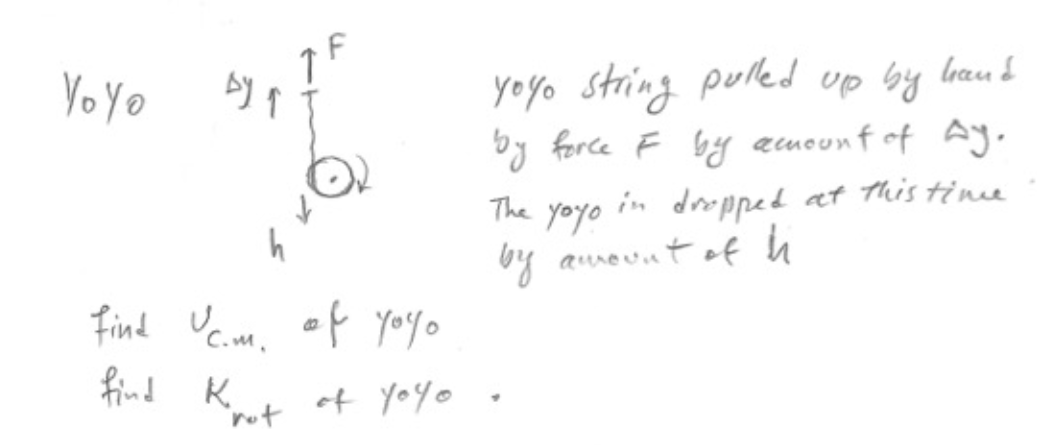 YoYo
Δy
F
h
yoyo string pulled up by hand
by force F by amount of Δy.
The yoyo in dropped at this time
by amount of h
find υc.m. of yoyo
find Krot of yoyo .